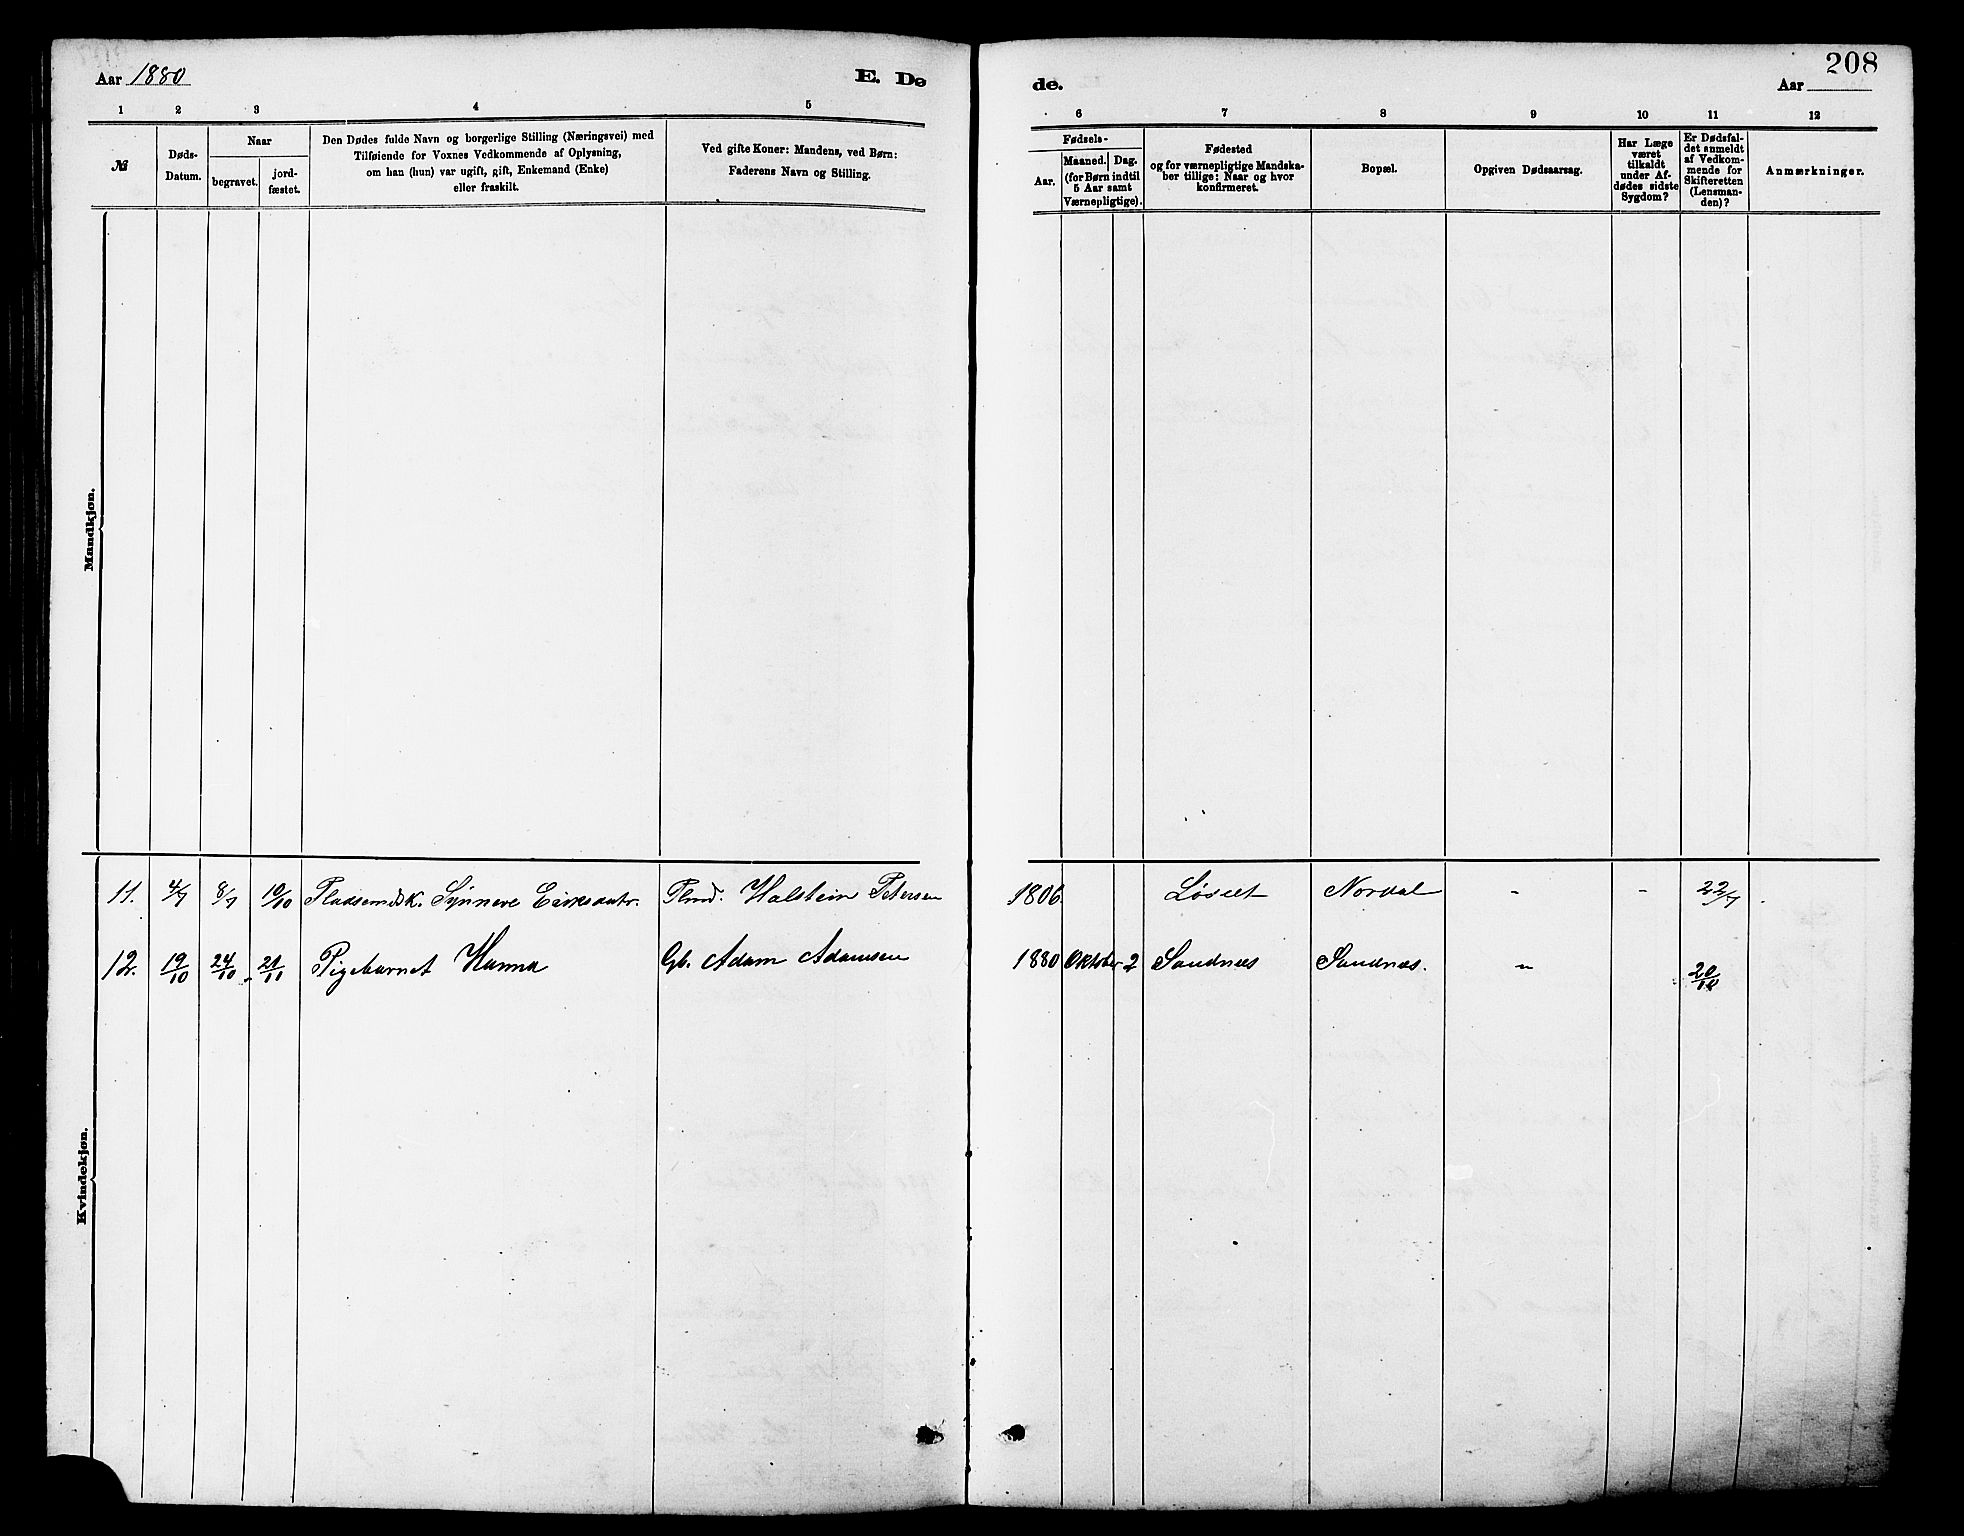 Aar 1880
E. Dø
de.
Aar
208
1 2 3 4 5
6 7 8 9 10 11 12
№
Døds-
Datum.
Naar
begravet.
jord-
fæstet.
Den Dødes fulde Navn og borgerlige Stilling (Næringsvei) med
Tilføiende for Voxnes Vedkommende af Oplysning,
om han (hun) var ugift, gift, Enkemand (Enke)
eller fraskilt.
Ved gifte Koner: Mandens, ved Børn:
Faderens Navn og Stilling.
Fødsels-
Aar.
Maaned. Dag.
(for Børn indtil
5 Aar samt
Værnepligtige).
Fødested
og for værnepligtige Mandska-
ber tillige: Naar og hvor
konfirmeret.
Bopæl.
Opgiven Dødsaarsag.
Har Læge
været
tilkaldt
under Af-
dødes sidste
Sygdom?
Er Dødsfal-
det anmeldt
af Vedkom-
mende for
Skifteretten
(Lensman-
den)?
Anmærkninger.
Mandkjøn.
11. 4/7 8/7 10/10 Pladsemdsk. Synneve Eriksdatr. Plmd. Halstein Petersen 1806 Løset Nordal - - 22/7
12. 19/10 24/10 21/11 Pigebarnet Hanna Gb. Adam Adamsen 1880 Oktober 2 Sandnes Sandnæs. - 20/10
Kvindekjøn.